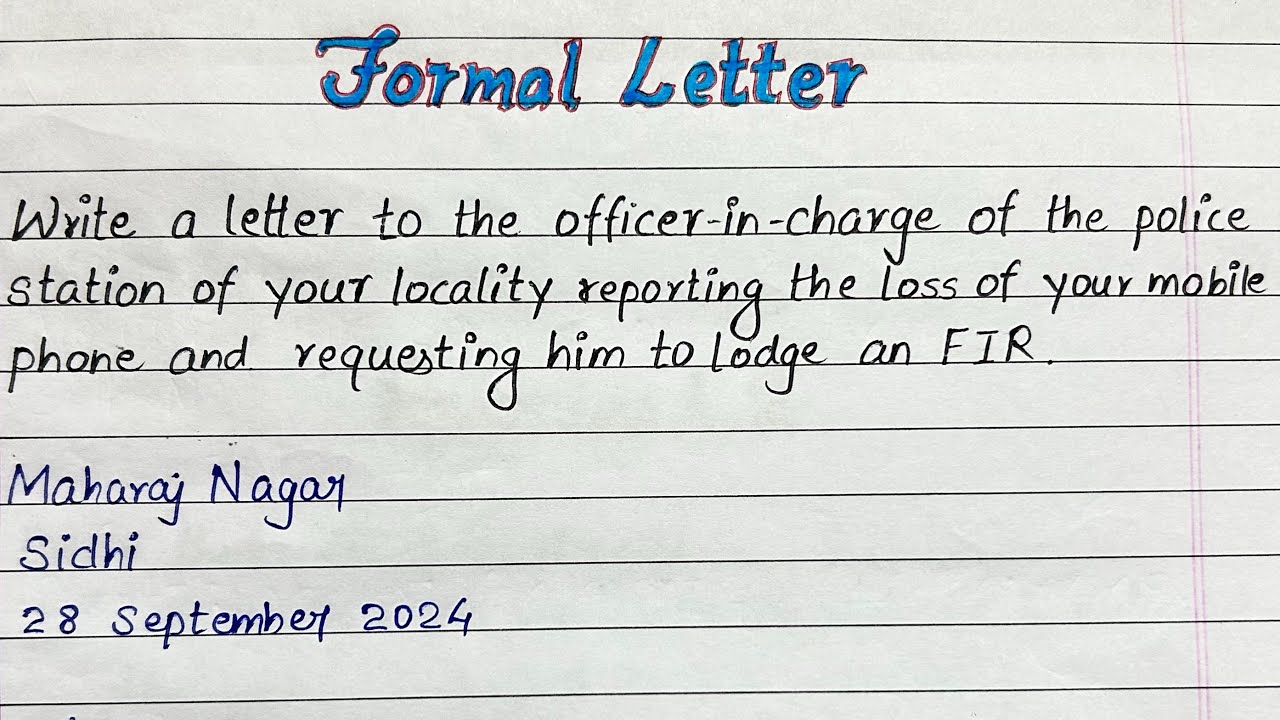 Formal Letter
Write a letter to the officer-in-charge of the police
station of your locality reporting the loss of your mobile
phone and requesting him to lodge an FIR.
Maharaj Nagar
Sidhi
28 September 2024